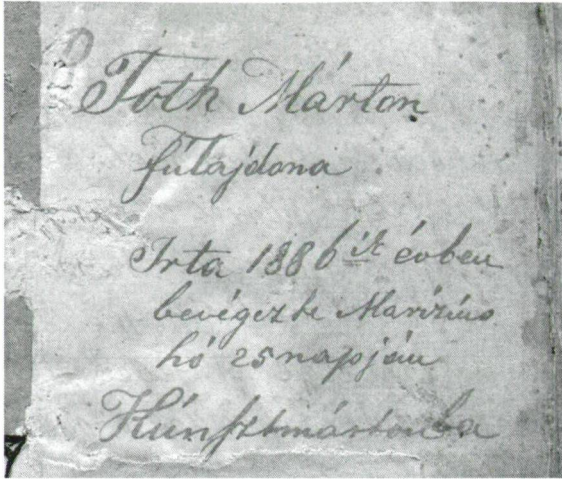 Toth Márton
fútajdona
Irta 1886ik évben
bevégezte Marizius
hó 25 napján
Kúnsztmártonba